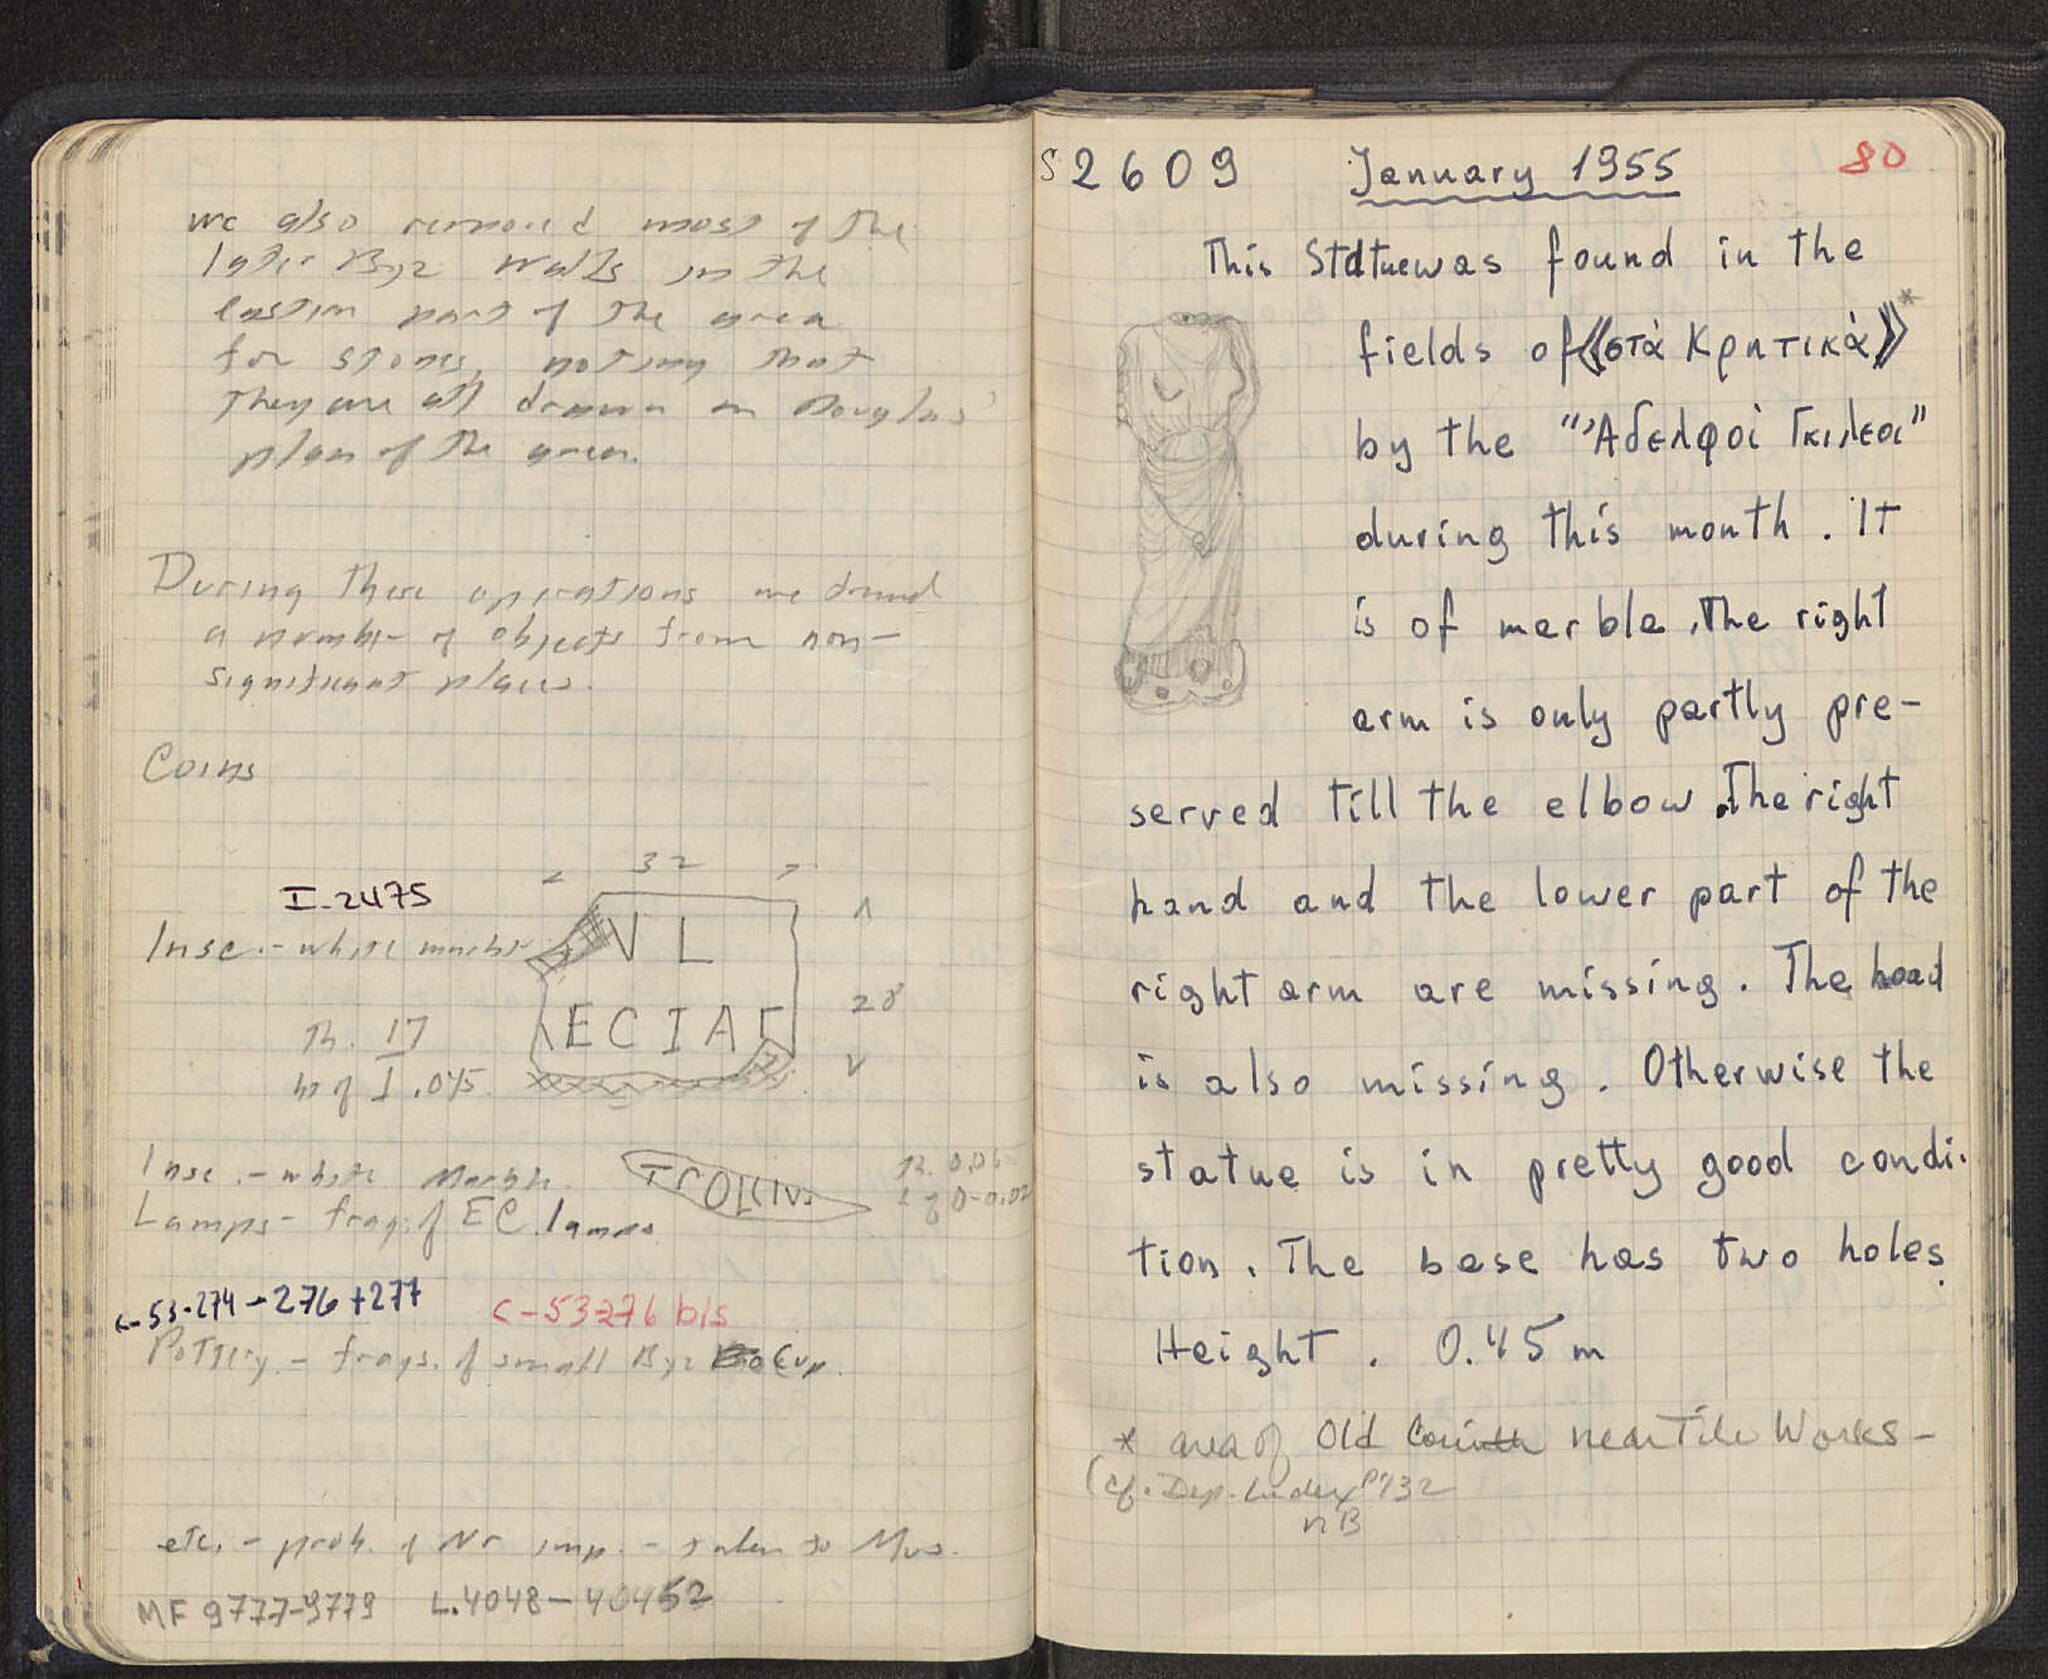 we also removed most of the
later Byz walls in the
eastern part of the area
for stones, noting that
they are all drawn on Douglas'
plan of the area.
During these operations we found
a number of objects from non-
significant places.
Coins
I-2475
32
Insc. - white marble
V L
ECIAE
28
Th. 17
h of I .045
Insc. - white Marble.
Th. 0.06
Lamps - frag. of EC. lamps
C-53-274-276+277
C-53276 bis
Pottery - frags. of small Byz Cup.
etc. - prob. of No imp. - taken to Mus.
MF 9777-9779 L.4048-40452
S 2609 January 1955 80
This Statue was found in the
fields of «στὰ Κρητικά»*
by the "Ἀδελφοί Γκιλεσι"
during this month. It
is of marble, the right
arm is only partly pre-
served till the elbow. The right
hand and the lower part of the
right arm are missing. The head
is also missing. Otherwise the
statue is in pretty good condi-
tion. The base has two holes.
Height. 0.45 m
* area of Old Corinth near Tile Works -
(cf. Dep. Index P 732
nB